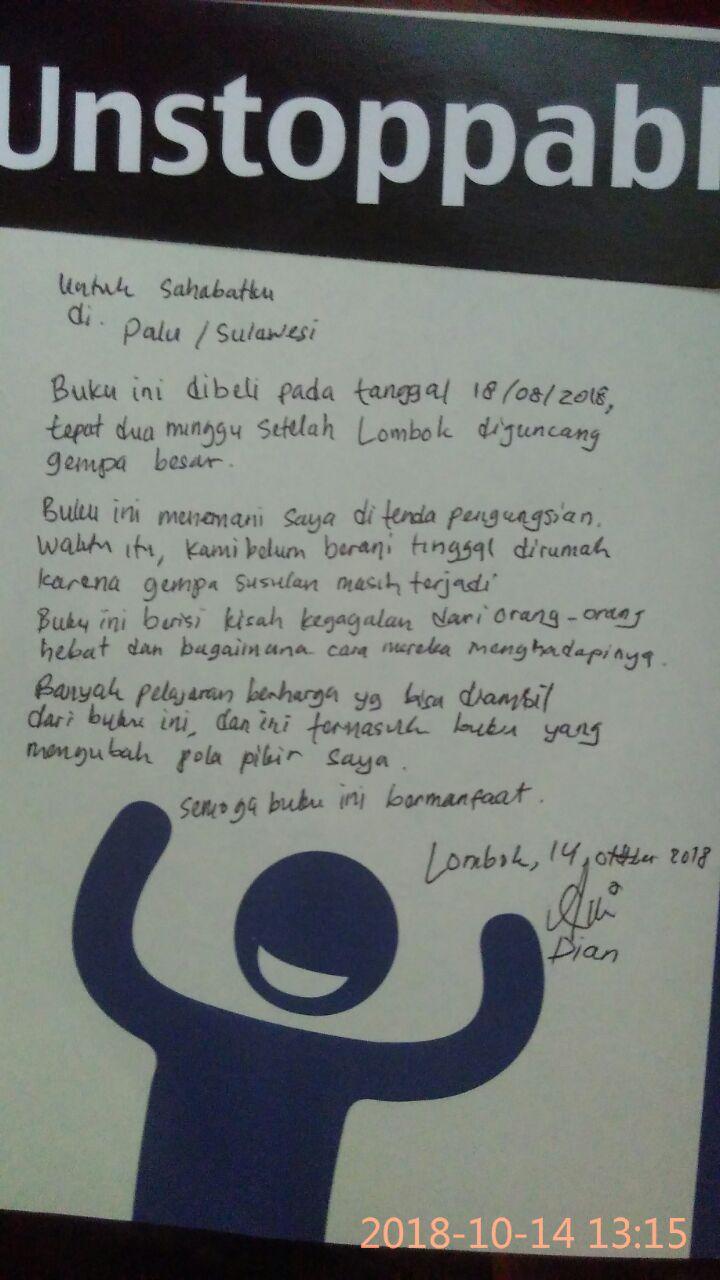 Unstoppabl
Untuk Sahabatku
di.
Palu / Sulawesi
Buku ini dibeli pada tanggal 18/08/2018,
tepat dua minggu setelah Lombok diguncang
gempa besar.
Buku ini menemani saya di tenda pengungsian.
Waktu itu, kami belum berani tinggal dirumah
karena gempa susulan masih terjadi
Buku ini berisi kisah kegagalan dari orang-orang
hebat dan bagaimana cara mereka menghadapinya.
Banyak pelajaran berharga yg bisa diambil
dari buku ini, dan ini termasuk buku yang
mengubah pola pikir saya.
Semoga buku ini bermanfaat.
Lombok, 14 oktober 2018
Dian
2018-10-14 13:15